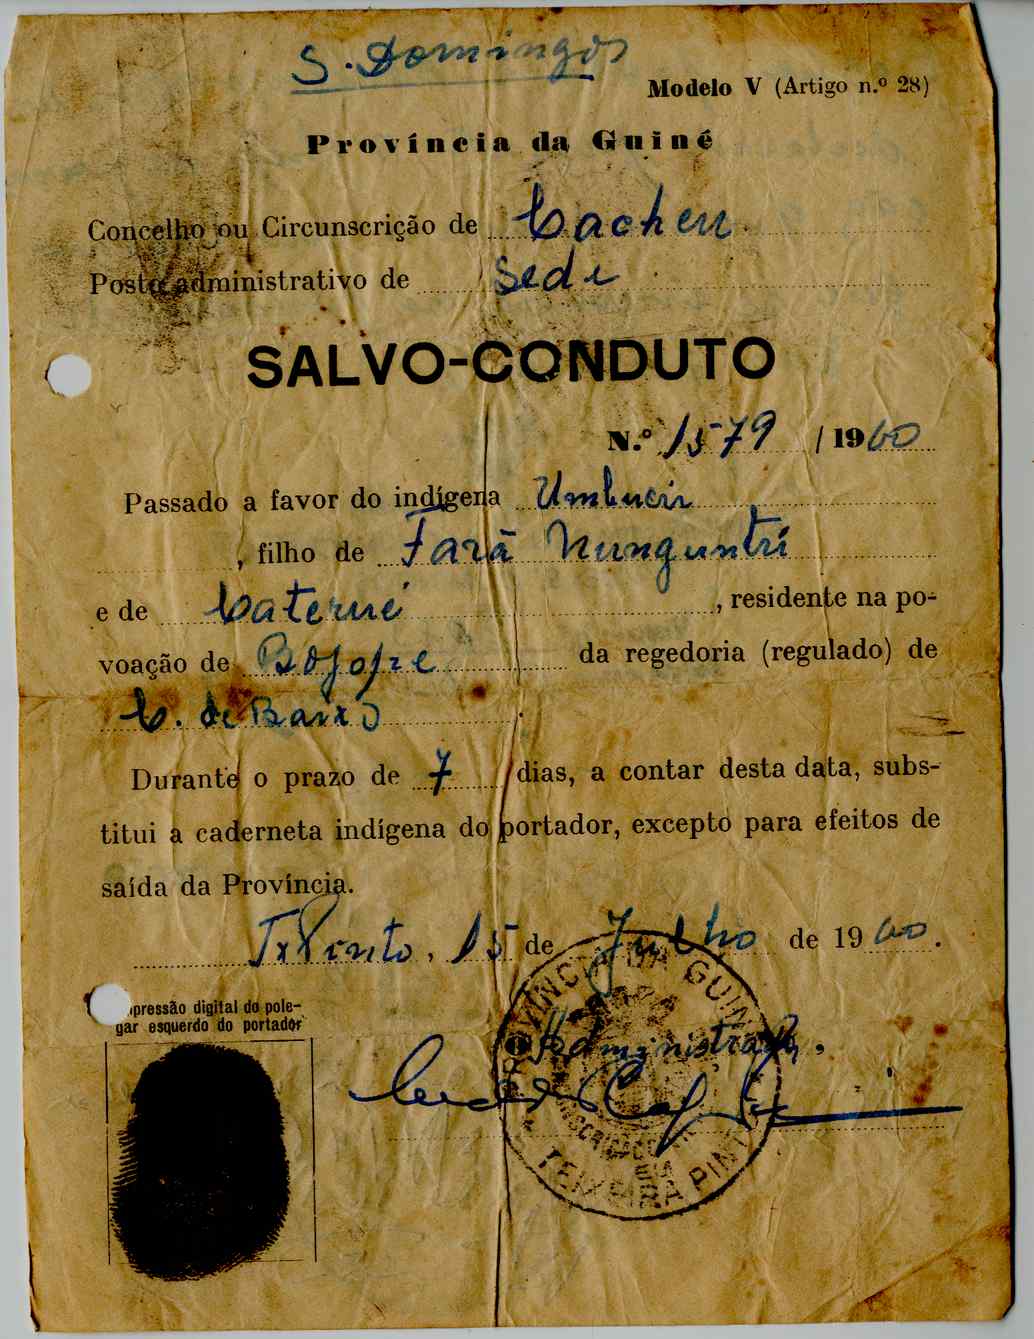 S. Domingos
Modelo V (Artigo n.º 28)
Província da Guiné
Concelho ou Circunscrição de Cacheu
Posto administrativo de Sede
SALVO-CONDUTO
N.º 1579 / 1960
Passado a favor do indígena Umbucir
, filho de Fará Nunguntri
e de Caterné, residente na po-
voação de Bojope da regedoria (regulado) de
C. de Baixo
Durante o prazo de 7 dias, a contar desta data, subs-
titui a caderneta indígena do portador, excepto para efeitos de
saída da Província.
Tx Pinto, 15 de Julho de 1960.
impressão digital do pole-
gar esquerdo do portador
O Administrador,
PROVÍNCIA DA GUINÉ
TEIXEIRA PINTO